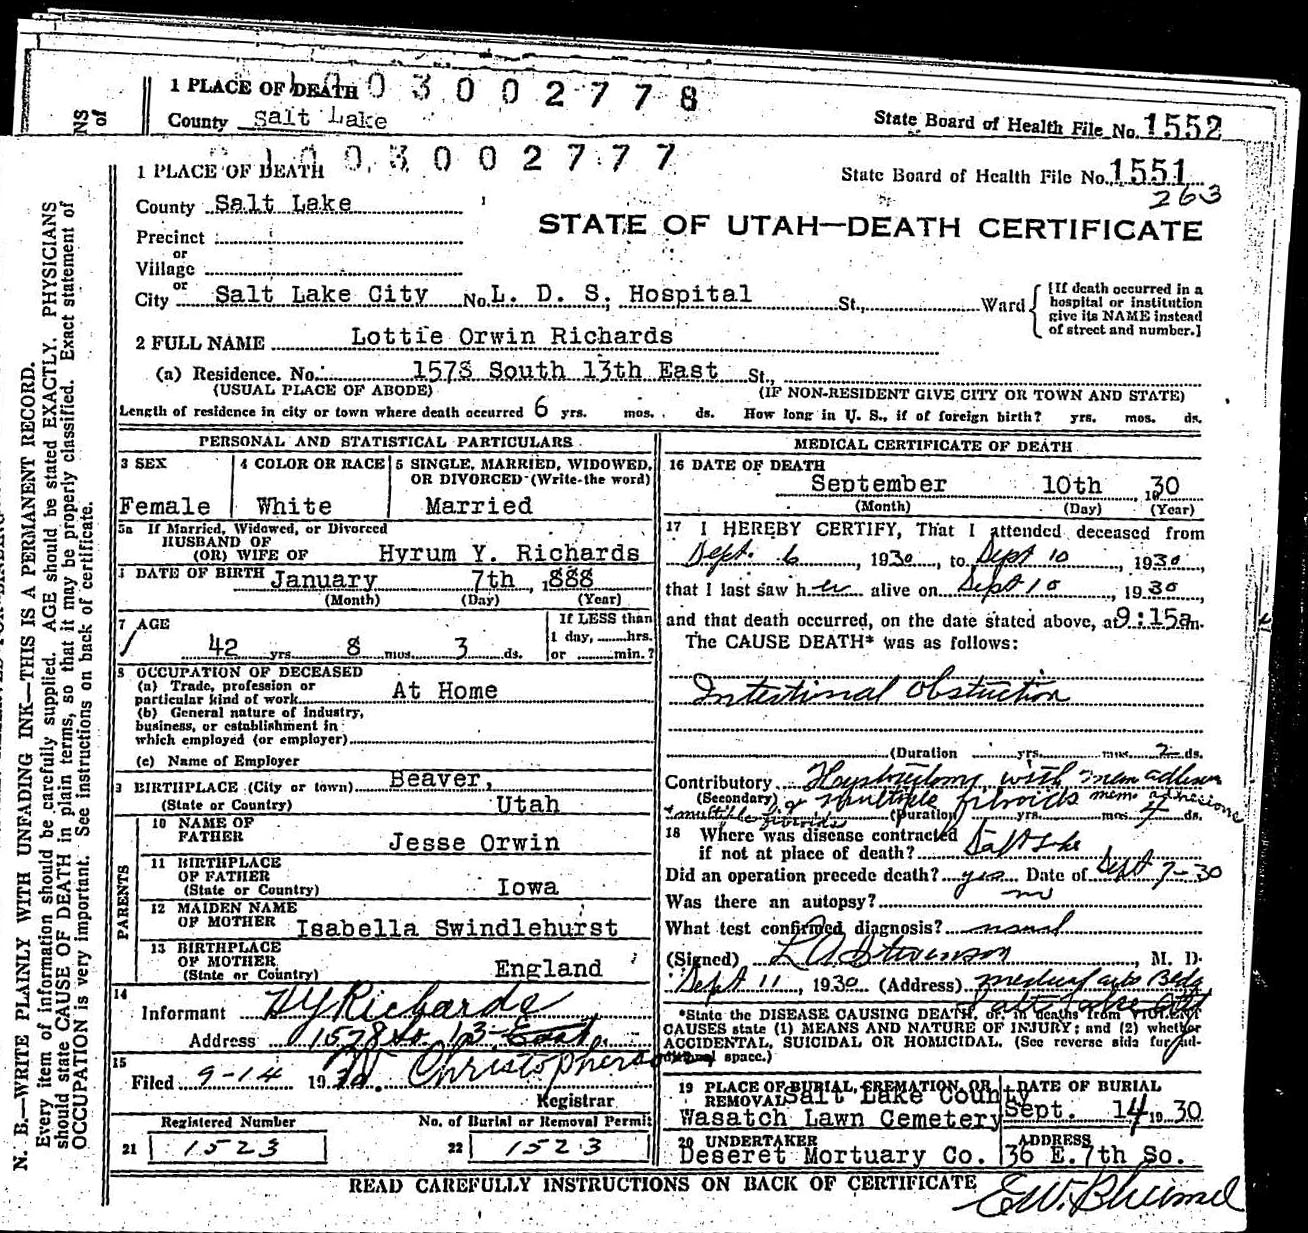 1 PLACE OF DEATH 003002778
County Salt Lake
State Board of Health File No. 1552
1003002777
1 PLACE OF DEATH
State Board of Health File No. 1551
263
County Salt Lake
STATE OF UTAH—DEATH CERTIFICATE
Precinct
or
Village
or
City Salt Lake City No. L. D. S. Hospital St., Ward
[If death occurred in a
hospital or institution
give its NAME instead
of street and number.]
2 FULL NAME Lottie Orwin Richards
(a) Residence. No. 1578 South 13th East St.,
(USUAL PLACE OF ABODE) (IF NON-RESIDENT GIVE CITY OR TOWN AND STATE)
Length of residence in city or town where death occurred 6 yrs. mos. ds. How long in U. S., if of foreign birth? yrs. mos. ds.
PERSONAL AND STATISTICAL PARTICULARS
3 SEX
Female
4 COLOR OR RACE
White
5 SINGLE, MARRIED, WIDOWED,
OR DIVORCED (Write the word)
Married
5a If Married, Widowed, or Divorced
HUSBAND OF
(OR) WIFE OF Hyrum Y. Richards
DATE OF BIRTH January 7th, 1888
(Month) (Day) (Year)
7 AGE
42 yrs. 8 mos. 3 ds.
If LESS than
1 day, hrs.
or min.?
8 OCCUPATION OF DECEASED
(a) Trade, profession or
particular kind of work At Home
(b) General nature of industry,
business, or establishment in
which employed (or employer)
(c) Name of Employer
BIRTHPLACE (City or town) Beaver,
(State or Country) Utah
PARENTS
10 NAME OF
FATHER Jesse Orwin
11 BIRTHPLACE
OF FATHER
(State or Country) Iowa
12 MAIDEN NAME
OF MOTHER Isabella Swindlehurst
13 BIRTHPLACE
OF MOTHER
(State or Country) England
14
Informant H Y Richards
Address 1578 So. 13 East.
15
Filed 9-14 1930. Christopherson
Registrar
Registered Number
21 1523
No. of Burial or Removal Permit
22 1523
MEDICAL CERTIFICATE OF DEATH
16 DATE OF DEATH
September 10th 1930
(Month) (Day) (Year)
17 I HEREBY CERTIFY, That I attended deceased from
Sept. 6, 1930, to Sept 10, 1930,
that I last saw her alive on Sept 10, 1930
and that death occurred, on the date stated above, at 9:15a m.
The CAUSE DEATH* was as follows:
Intestional Obstruction
(Duration yrs. mos. 2 ds.
Contributory
(Secondary) multiple fibroids
(Duration yrs. mos. ds.
18 Where was disease contracted
if not at place of death? Salt Lake
Did an operation precede death? yes Date of Sept 7-30
Was there an autopsy? no
What test confirmed diagnosis? usual
(Signed) L A Stevenson, M. D.
Sept 11, 1930 (Address) Medical Arts Bldg
Salt Lake
*State the DISEASE CAUSING DEATH, or, in deaths from VIOLENT
CAUSES state (1) MEANS AND NATURE OF INJURY; and (2) whether
ACCIDENTAL, SUICIDAL OR HOMICIDAL. (See reverse side for ad-
ditional space.)
19 PLACE OF BURIAL, CREMATION, OR
REMOVAL Salt Lake County
Wasatch Lawn Cemetery
DATE OF BURIAL
Sept. 14 1930
20 UNDERTAKER
Deseret Mortuary Co.
ADDRESS
36 E. 7th So.
READ CAREFULLY INSTRUCTIONS ON BACK OF CERTIFICATE
N. B.—WRITE PLAINLY WITH UNFADING INK—THIS IS A PERMANENT RECORD.
Every item of information should be carefully supplied. AGE should be stated EXACTLY. PHYSICIANS
should state CAUSE OF DEATH in plain terms, so that it may be properly classified. Exact statement of
OCCUPATION is very important. See instructions on back of certificate.